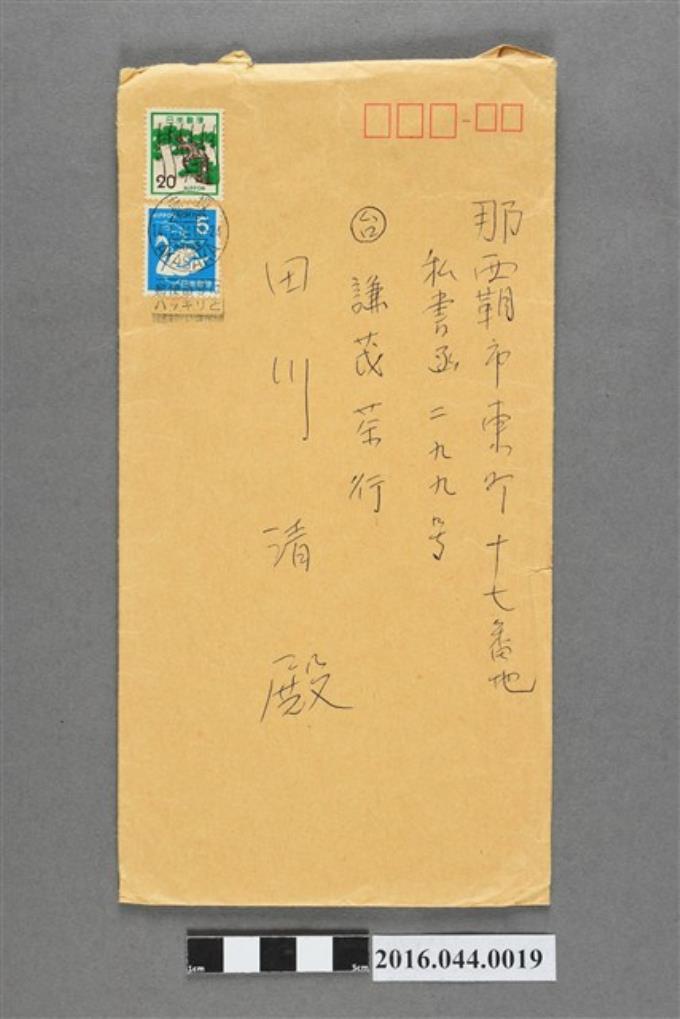 那覇市東町十七番地
私書函二九九号
台 謙茂茶行
田川清殿
日本郵便
20
NIPPON
NIPPON
5
日本郵便
ハッキリと
1cm
5cm
2016.044.0019